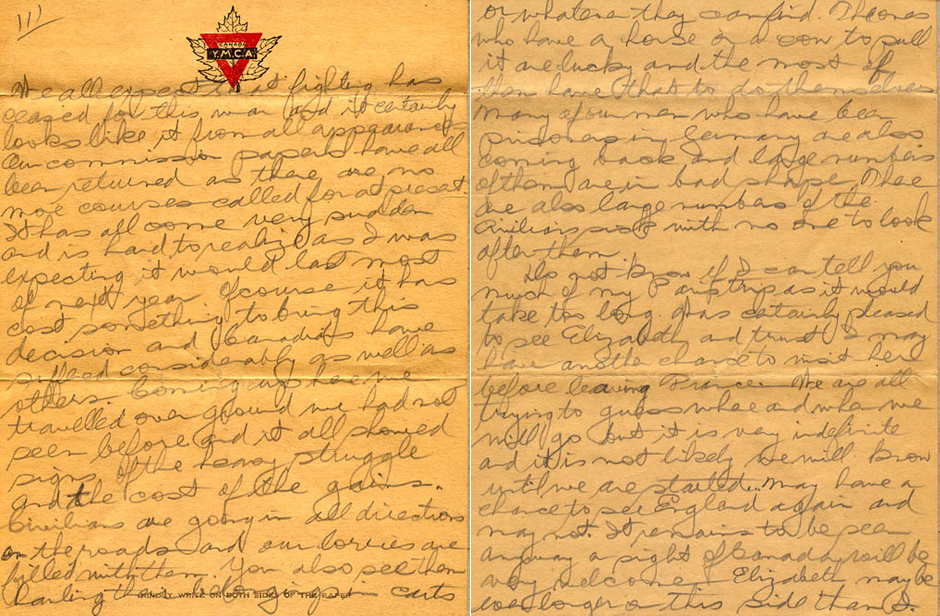 111
CANADA
Y.M.C.A.
We all expect that fighting has
ceased for this war and it certainly
looks like it from all appearances
Our commission papers have all
been returned as there are no
more courses called for at present
It has all come very sudden
and is hard to realize as I was
expecting it would last most
of next year. Of course it has
cost something to bring this
decision and Canadians have
suffered considerably as well as
others. Coming up here we
travelled over ground we had not
seen before and it all showed
signs of the heavy struggle
and the cost of the gains.
Civilians are going in all directions
on the roads and our lorries are
filled with them. You also see them
hauling their belongings in carts
KINDLY WRITE ON BOTH SIDES OF THE PAPER
or whatever they can find. The ones
who have a horse or a cow to pull
it are lucky and the most of
them have that to do themselves
Many of our men who have been
prisoners in Germany are also
coming back and large numbers
of them are in bad shape. There
are also large numbers of the
civilians sick with no one to look
after them.
Do not know if I can tell you
much of my Paris trip as it would
take too long. Was certainly pleased
to see Elizabeth and trust I may
have another chance to visit her
before leaving France. We are all
trying to guess where and when we
will go but it is very indefinite
and it is not likely we will know
until we are started. May have a
chance to see England again and
may not. It remains to be seen
anyway a sight of Canada will be
very welcome. Elizabeth may be
even longer on this side than I.